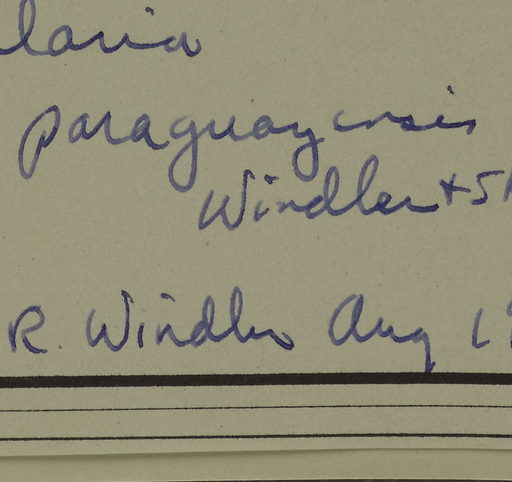 laria
paraguayensis
Windler + S
R. Windler Aug 1